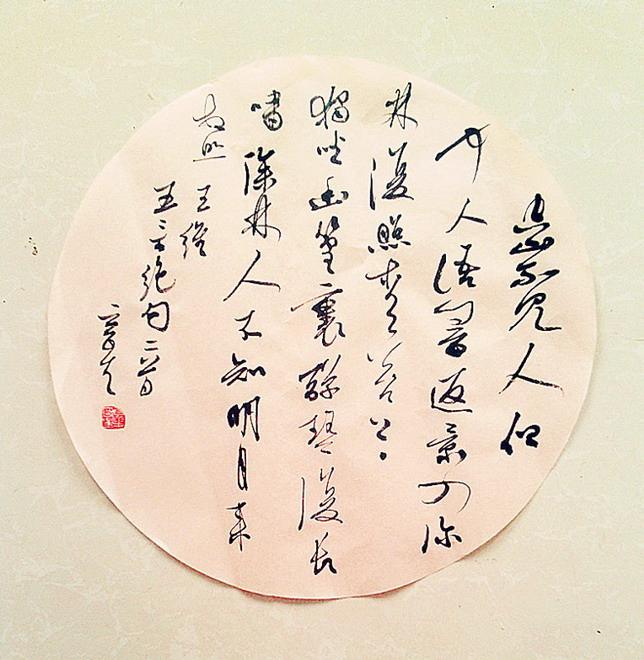 空山不见人但
闻人语响返景入深
林復照青苔上
獨坐幽篁裏弹琴復长
嘯深林人不知明月来
相照
王維
五言绝句二首